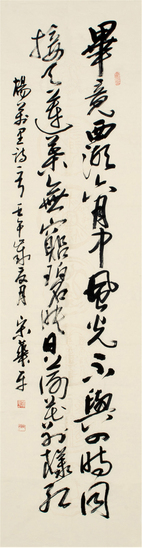 畢竟西湖六月中風光不與四時同
接天蓮葉無窮碧映日荷花別樣紅
楊萬里詩一首壬午歲夏月宋華平